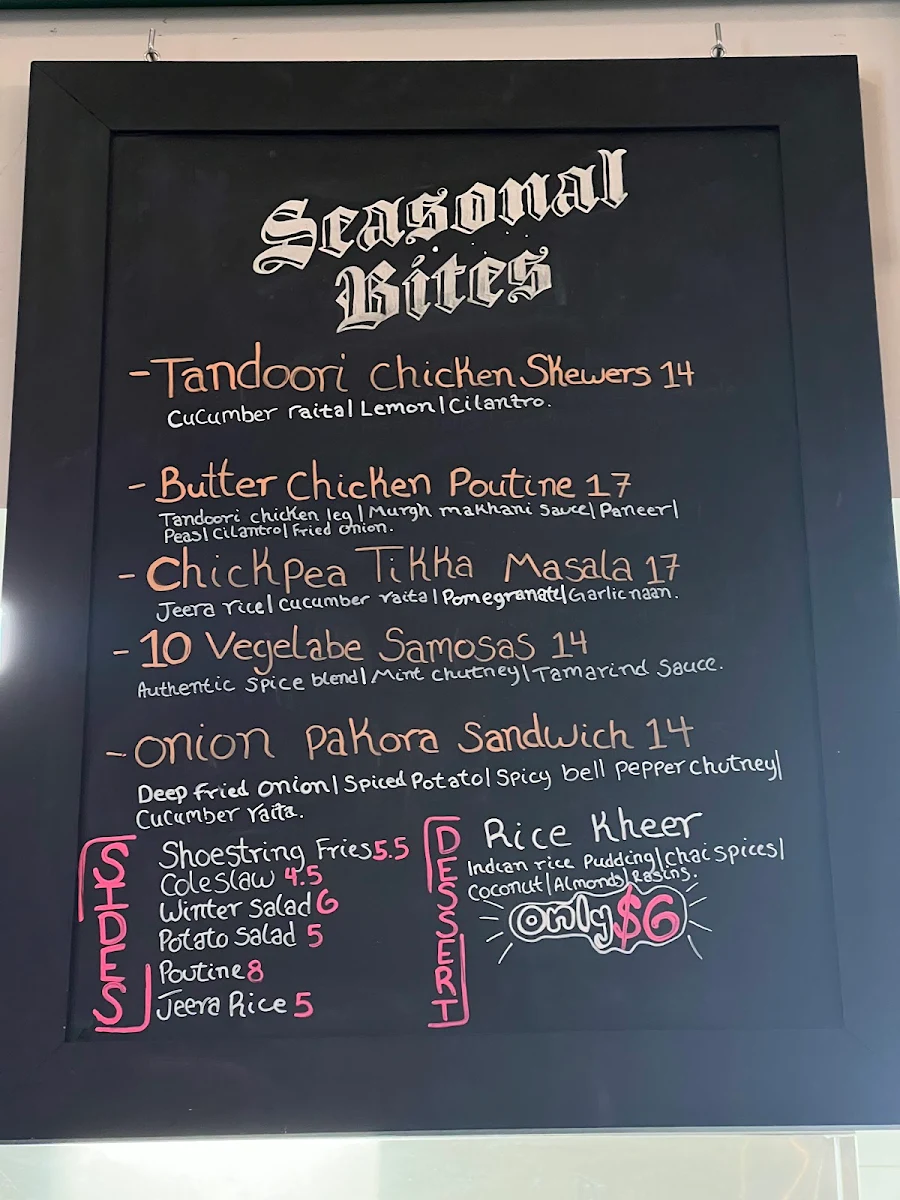 Seasonal
Bites
- Tandoori Chicken Skewers 14
Cucumber raita | Lemon | Cilantro.
- Butter Chicken Poutine 17
Tandoori chicken leg | Murgh makhani sauce | Paneer |
Peas | Cilantro | Fried onion.
- Chickpea Tikka Masala 17
Jeera rice | Cucumber raita | Pomegranate | Garlic naan.
- 10 Vegelabe Samosas 14
Authentic spice blend | Mint chutney | Tamarind Sauce.
- Onion Pakora Sandwich 14
Deep Fried Onion | Spiced Potato | Spicy bell pepper chutney |
Cucumber raita.
SIDES
Shoestring Fries 5.5
Coleslaw 4.5
Winter Salad 6
Potato Salad 5
Poutine 8
Jeera Rice 5
DESSERT
Rice Kheer
Indian rice Pudding | Chai spices |
Coconut | Almonds | Rasins.
only $6